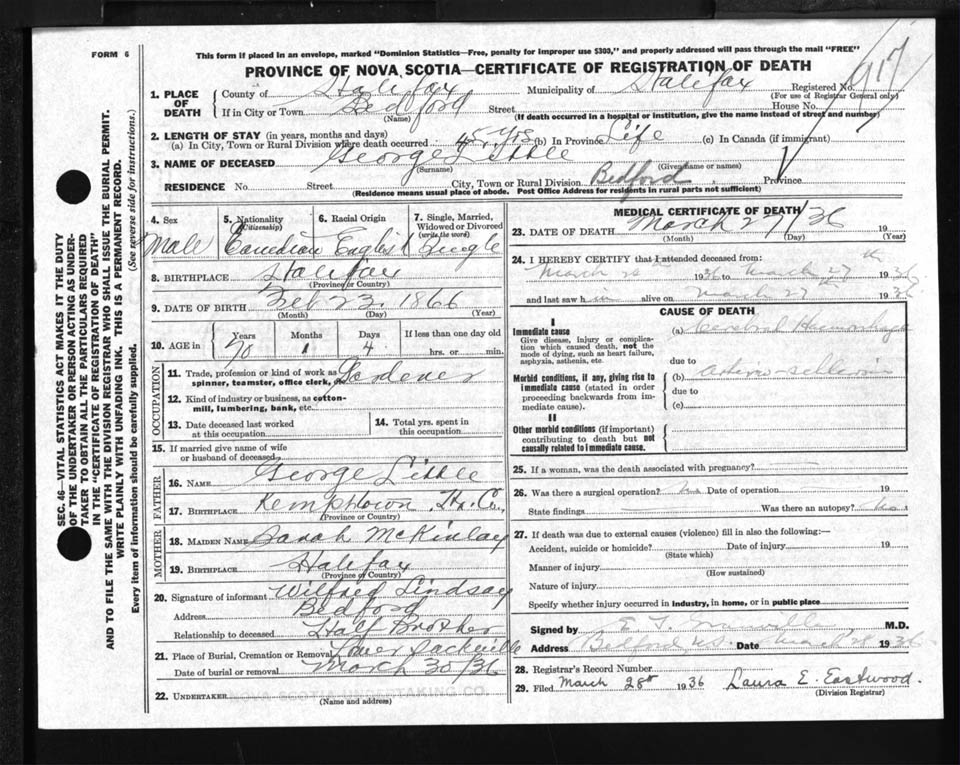 FORM 6
This form if placed in an envelope, marked "Dominion Statistics—Free, penalty for improper use $300," and properly addressed will pass through the mail "FREE"
PROVINCE OF NOVA SCOTIA—CERTIFICATE OF REGISTRATION OF DEATH
1. PLACE OF DEATH
County of Halifax Municipality of Halifax Registered No.
(For use of Registrar General only)
If in City or Town Bedford Street House No.
(Name) (If death occurred in a hospital or institution, give the name instead of street and number)
917
2. LENGTH OF STAY (in years, months and days)
(a) In City, Town or Rural Division where death occurred 45 yrs (b) In Province Life (c) In Canada (if immigrant)
3. NAME OF DECEASED George Little
(Surname) (Given name or names)
RESIDENCE No. Street City, Town or Rural Division Bedford Province
(Residence means usual place of abode. Post Office Address for residents in rural parts not sufficient)
4. Sex Male
5. Nationality (Citizenship) Canadian
6. Racial Origin English
7. Single, Married, Widowed or Divorced (write the word) Single
8. BIRTHPLACE Halifax
(Province or Country)
9. DATE OF BIRTH Feb 23 1866
(Month) (Day) (Year)
10. AGE in Years 70 Months 1 Days 4 If less than one day old
hrs. or min.
OCCUPATION
11. Trade, profession or kind of work as spinner, teamster, office clerk,
12. Kind of industry or business, as cotton-mill, lumbering, bank, etc.
13. Date deceased last worked at this occupation
14. Total yrs. spent in this occupation
15. If married give name of wife or husband of deceased
FATHER
16. NAME George Little
17. BIRTHPLACE Kemptown
(Province or Country)
MOTHER
18. MAIDEN NAME Sarah McKinlay
19. BIRTHPLACE Halifax
(Province or Country)
20. Signature of informant Wilfred Lindsay
Address Bedford
Relationship to deceased Half Brother
21. Place of Burial, Cremation or Removal Lower Sackville
Date of burial or removal March 30/36
22. UNDERTAKER NOVA SCOTIA UNDERTAKING CO.
(Name and address)
MEDICAL CERTIFICATE OF DEATH
23. DATE OF DEATH March 27/36 19
(Month) (Day) (Year)
24. I HEREBY CERTIFY that I attended deceased from:
March 1936 to March 27th 1936
and last saw him alive on March 27th 1936
CAUSE OF DEATH
I
Immediate cause
Give disease, injury or complication which caused death, not the mode of dying, such as heart failure, asphyxia, asthenia, etc.
(a) Cerebral Haemorrhage
due to
Morbid conditions, if any, giving rise to immediate cause (stated in order proceeding backwards from immediate cause).
(b)
due to
(c)
II
Other morbid conditions (if important) contributing to death but not causally related to immediate cause.
25. If a woman, was the death associated with pregnancy?
26. Was there a surgical operation? no Date of operation 19
State findings Was there an autopsy? no
27. If death was due to external causes (violence) fill in also the following:—
Accident, suicide or homicide? Date of injury 19
(State which)
Manner of injury
(How sustained)
Nature of injury
Specify whether injury occurred in industry, in home, or in public place
Signed by M.D.
Address Bedford N.S. Date March 28 1936
28. Registrar's Record Number
29. Filed March 28th 1936 Laura E. Eastwood.
(Division Registrar)
SEC. 46—VITAL STATISTICS ACT MAKES IT THE DUTY
OF THE UNDERTAKER OR PERSON ACTING AS UNDER-
TAKER TO OBTAIN ALL THE PARTICULARS REQUIRED
IN THE "CERTIFICATE OF REGISTRATION OF DEATH"
AND TO FILE THE SAME WITH THE DIVISION REGISTRAR WHO SHALL ISSUE THE BURIAL PERMIT.
WRITE PLAINLY WITH UNFADING INK. THIS IS A PERMANENT RECORD.
Every item of information should be carefully supplied. (See reverse side for instructions.)